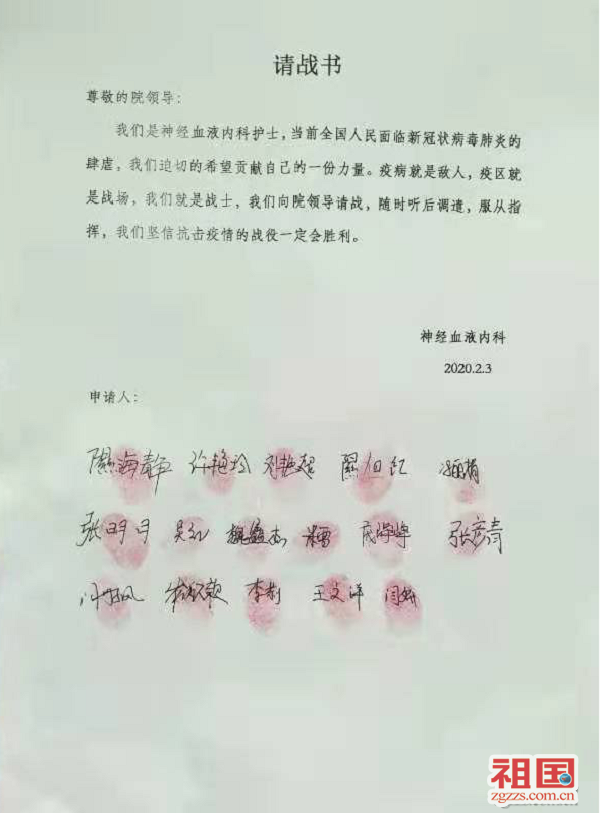 请战书
尊敬的院领导：
我们是神经血液内科护士，当前全国人民面临新冠状病毒肺炎的
肆虐，我们迫切的希望贡献自己的一份力量。疫病就是敌人，疫区就
是战场，我们就是战士，我们向院领导请战，随时听后调遣，服从指
挥，我们坚信抗击疫情的战役一定会胜利。
神经血液内科
2020.2.3
申请人：
海静 许艳玲 刘艳超 旭红
张明月 吴红 张彦青
李莉 王文洋 闫
祖国
zgzzs.com.cn